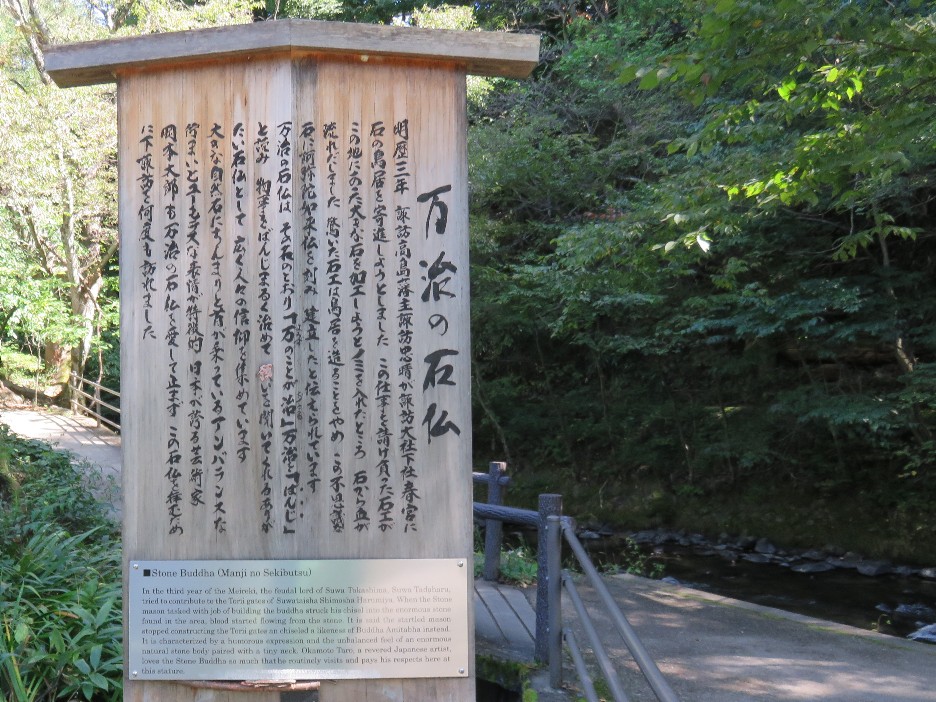 万治の石仏
明歴三年 諏訪高島藩主諏訪忠晴が諏訪大社下社春宮に
石の鳥居を寄進しようとしました この仕事を請け負った石工が
この地にあった大きな石を加工しようとノミを入れたところ 石から血が
流れだしました 驚いた石工は鳥居を造ることをやめ この不思議な
石に阿弥陀如来仏を刻み 建立したと伝えられています
万治の石仏は その名のとおり「万のことが治」万治を「ばんじ」
と読み 物事をばんじまるく治めて を聞いてくれるありが
たい石仏として 広く人々の信仰を集めています
大きな自然石にちんまりと首が乗っているアンバランスな
佇まいとユーモラスな表情が特徴的 日本が誇る芸術家
岡本太郎も万治の石仏を愛して止まず この石仏を拝むため
に下諏訪を何度も訪れました
■Stone Buddha (Manji no Sekibutsu)
In the third year of the Meireki, the feudal lord of Suwa Takashima, Suwa Tadaharu,
tried to contribute to the Torii gates of Suwataisha Shimosha Harumiya. When the Stone
mason tasked with job of building the buddha struck his chisel into the enormous stone
found in the area, blood started flowing from the stone. It is said the startled mason
stopped constructing the Torii gates an chiseled a likeness of Buddha Amitabha instead.
It is characterized by a humorous expression and the unbalanced feel of an enormous
natural stone body paired with a tiny neck. Okamoto Taro, a revered Japanese artist,
loves the Stone Buddha so much that he routinely visits and pays his respects here at
this stature.